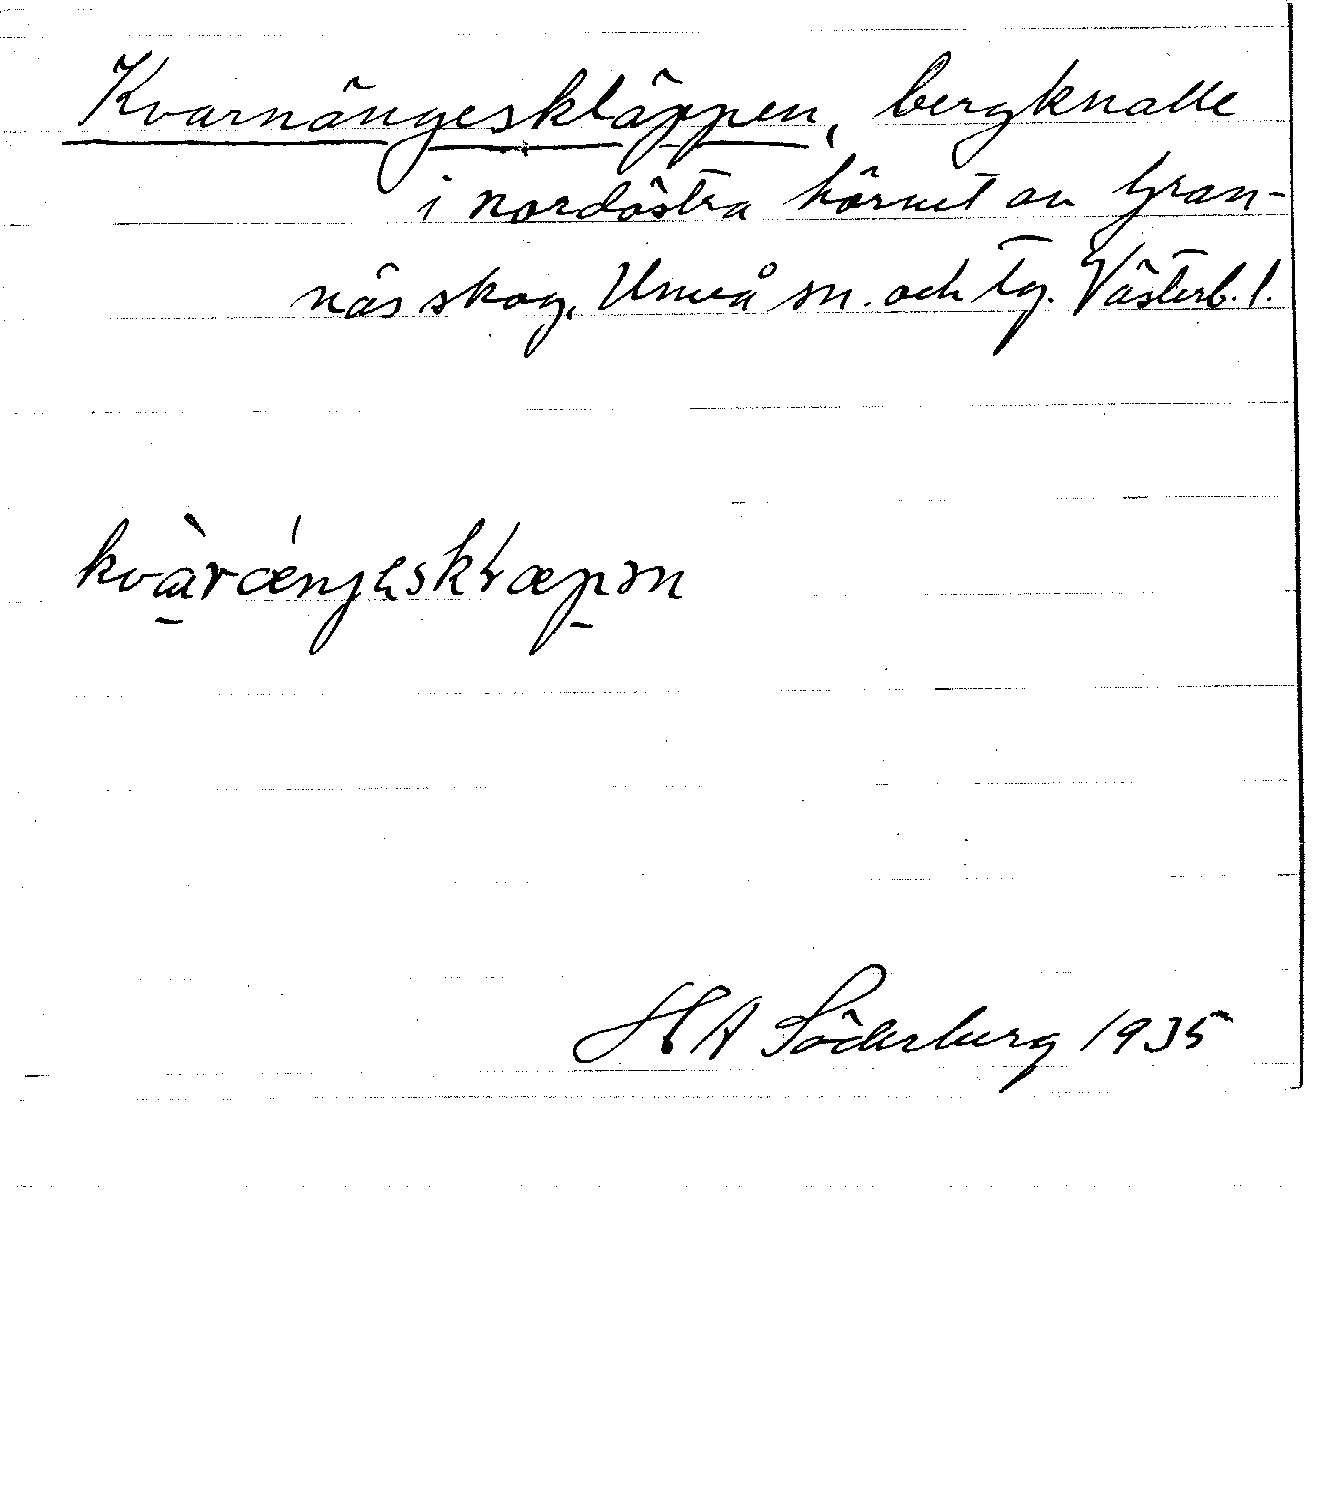 Kvarnängeskläppen, bergknalle
i nordöstra hörnet av Gran-
näs skog, Umeå sn. och tg. Västerb. l.
kvàrǽnjeskɬæpən
H A Söderberg 1935